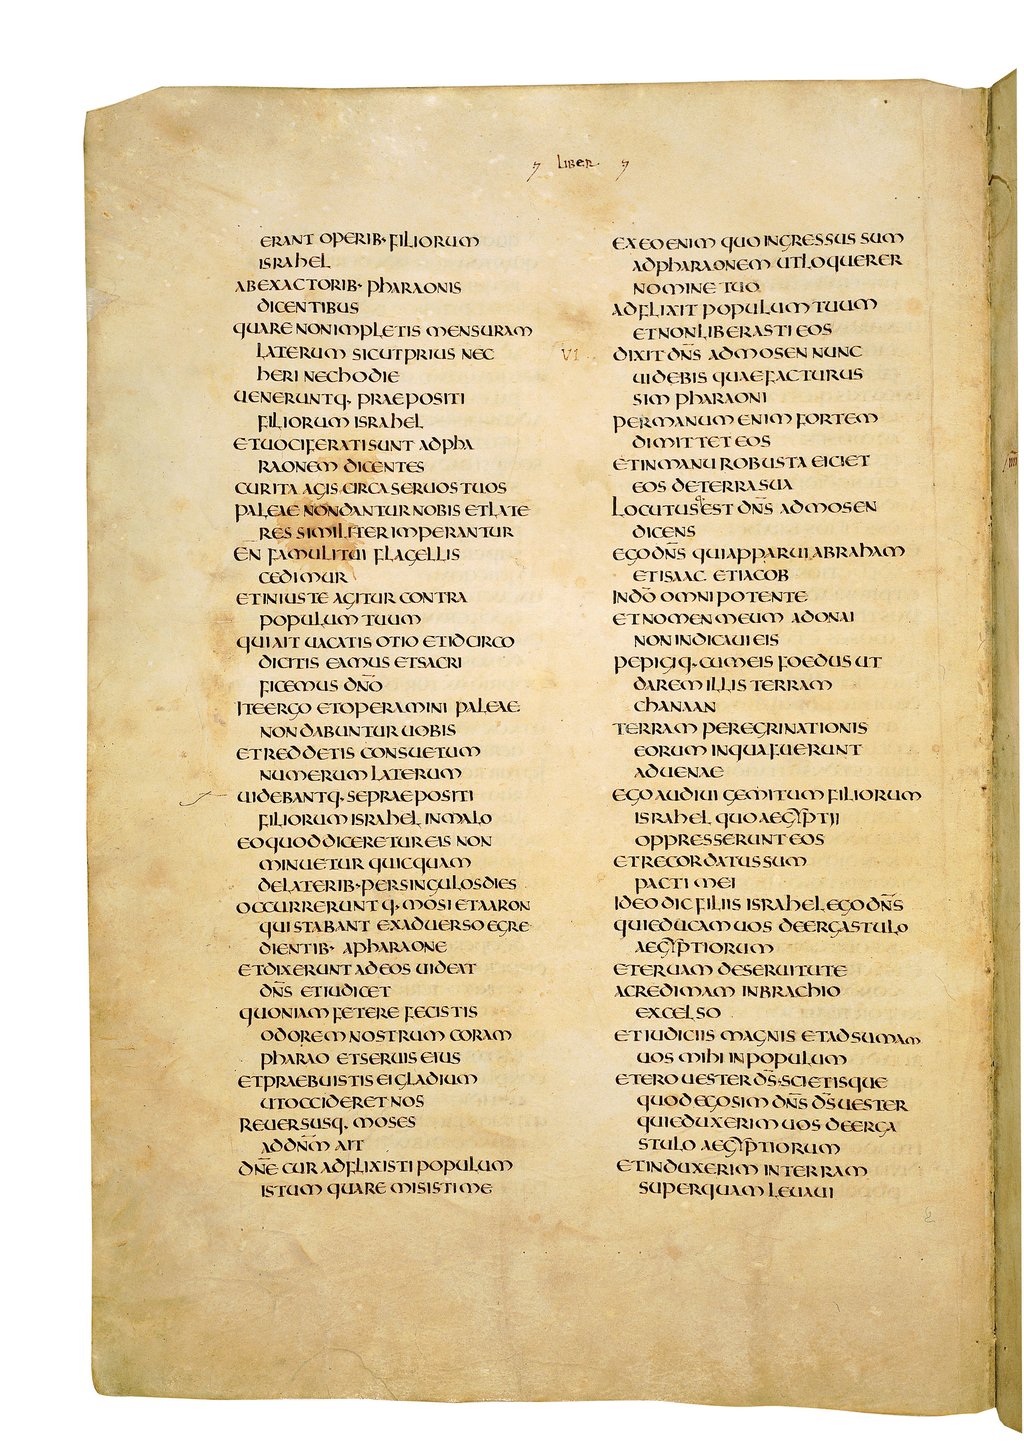 LIBER
ERANT OPERIB· FILIORUM
ISRAHEL
AB EXACTORIB· PHARAONIS
DICENTIBUS
QUARE NON IMPLETIS MENSURAM
LATERUM SICUT PRIUS NEC
HERI NEC HODIE
UENERUNTQ· PRAEPOSITI
FILIORUM ISRAHEL
ET UOCIFERATI SUNT AD PHA
RAONEM DICENTES
CUR ITA AGIS CIRCA SERUOS TUOS
PALEAE NON DANTUR NOBIS ET LATE
RES SIMILITER IMPERANTUR
EN FAMULI TUI FLAGELLIS
CEDIMUR
ET INIUSTE AGITUR CONTRA
POPULUM TUUM
QUI AIT UACATIS OTIO ET IDCIRCO
DICITIS EAMUS ET SACRI
FICEMUS DÑO
ITE ERGO ET OPERAMINI PALEAE
NON DABUNTUR UOBIS
ET REDDETIS CONSUETUM
NUMERUM LATERUM
UIDEBANTQ· SE PRAEPOSITI
FILIORUM ISRAHEL IN MALO
EO QUOD DICERETUR EIS NON
MINUETUR QUICQUAM
DE LATERIB· PER SINGULOS DIES
OCCURRERUNTQ· MOSI ET AARON
QUI STABANT EX ADUERSO EGRE
DIENTIB· A PHARAONE
ET DIXERUNT AD EOS UIDEAT
DÑS ET IUDICET
QUONIAM FETERE FECISTIS
ODOREM NOSTRUM CORAM
PHARAO ET SERUIS EIUS
ET PRAEBUISTIS EI GLADIUM
UT OCCIDERET NOS
REUERSUSQ· MOSES
AD DÑM AIT
DÑE CUR ADFLIXISTI POPULUM
ISTUM QUARE MISISTI ME
EX EO ENIM QUO INGRESSUS SUM
AD PHARAONEM UT LOQUERER
NOMINE TUO
ADFLIXIT POPULUM TUUM
ET NON LIBERASTI EOS
VI DIXIT DÑS AD MOSEN NUNC
UIDEBIS QUAE FACTURUS
SIM PHARAONI
PER MANUM ENIM FORTEM
DIMITTET EOS
ET IN MANU ROBUSTA EICIET
EOS DE TERRA SUA
LOCUTUSQ· EST DÑS AD MOSEN
DICENS
EGO DÑS QUI APPARUI ABRAHAM
ET ISAAC ET IACOB
IN DO̅ OMNIPOTENTE
ET NOMEN MEUM ADONAI
NON INDICAUI EIS
PEPIGIQ· CUM EIS FOEDUS UT
DAREM ILLIS TERRAM
CHANAAN
TERRAM PEREGRINATIONIS
EORUM IN QUA FUERUNT
ADUENAE
EGO AUDIUI GEMITUM FILIORUM
ISRAHEL QUO AEGYPTII
OPPRESSERUNT EOS
ET RECORDATUS SUM
PACTI MEI
IDEO DIC FILIIS ISRAHEL EGO DÑS
QUI EDUCAM UOS DE ERGASTULO
AEGYPTIORUM
ET ERUAM DE SERUITUTE
AC REDIMAM IN BRACHIO
EXCELSO
ET IUDICIIS MAGNIS ET ADSUMAM
UOS MIHI IN POPULUM
ET ERO UESTER DS̅· SCIETISQUE
QUOD EGO SIM DÑS DS̅ UESTER
QUI EDUXERIM UOS DE ERGA
STULO AEGYPTIORUM
ET INDUXERIM IN TERRAM
SUPER QUAM LEUAUI